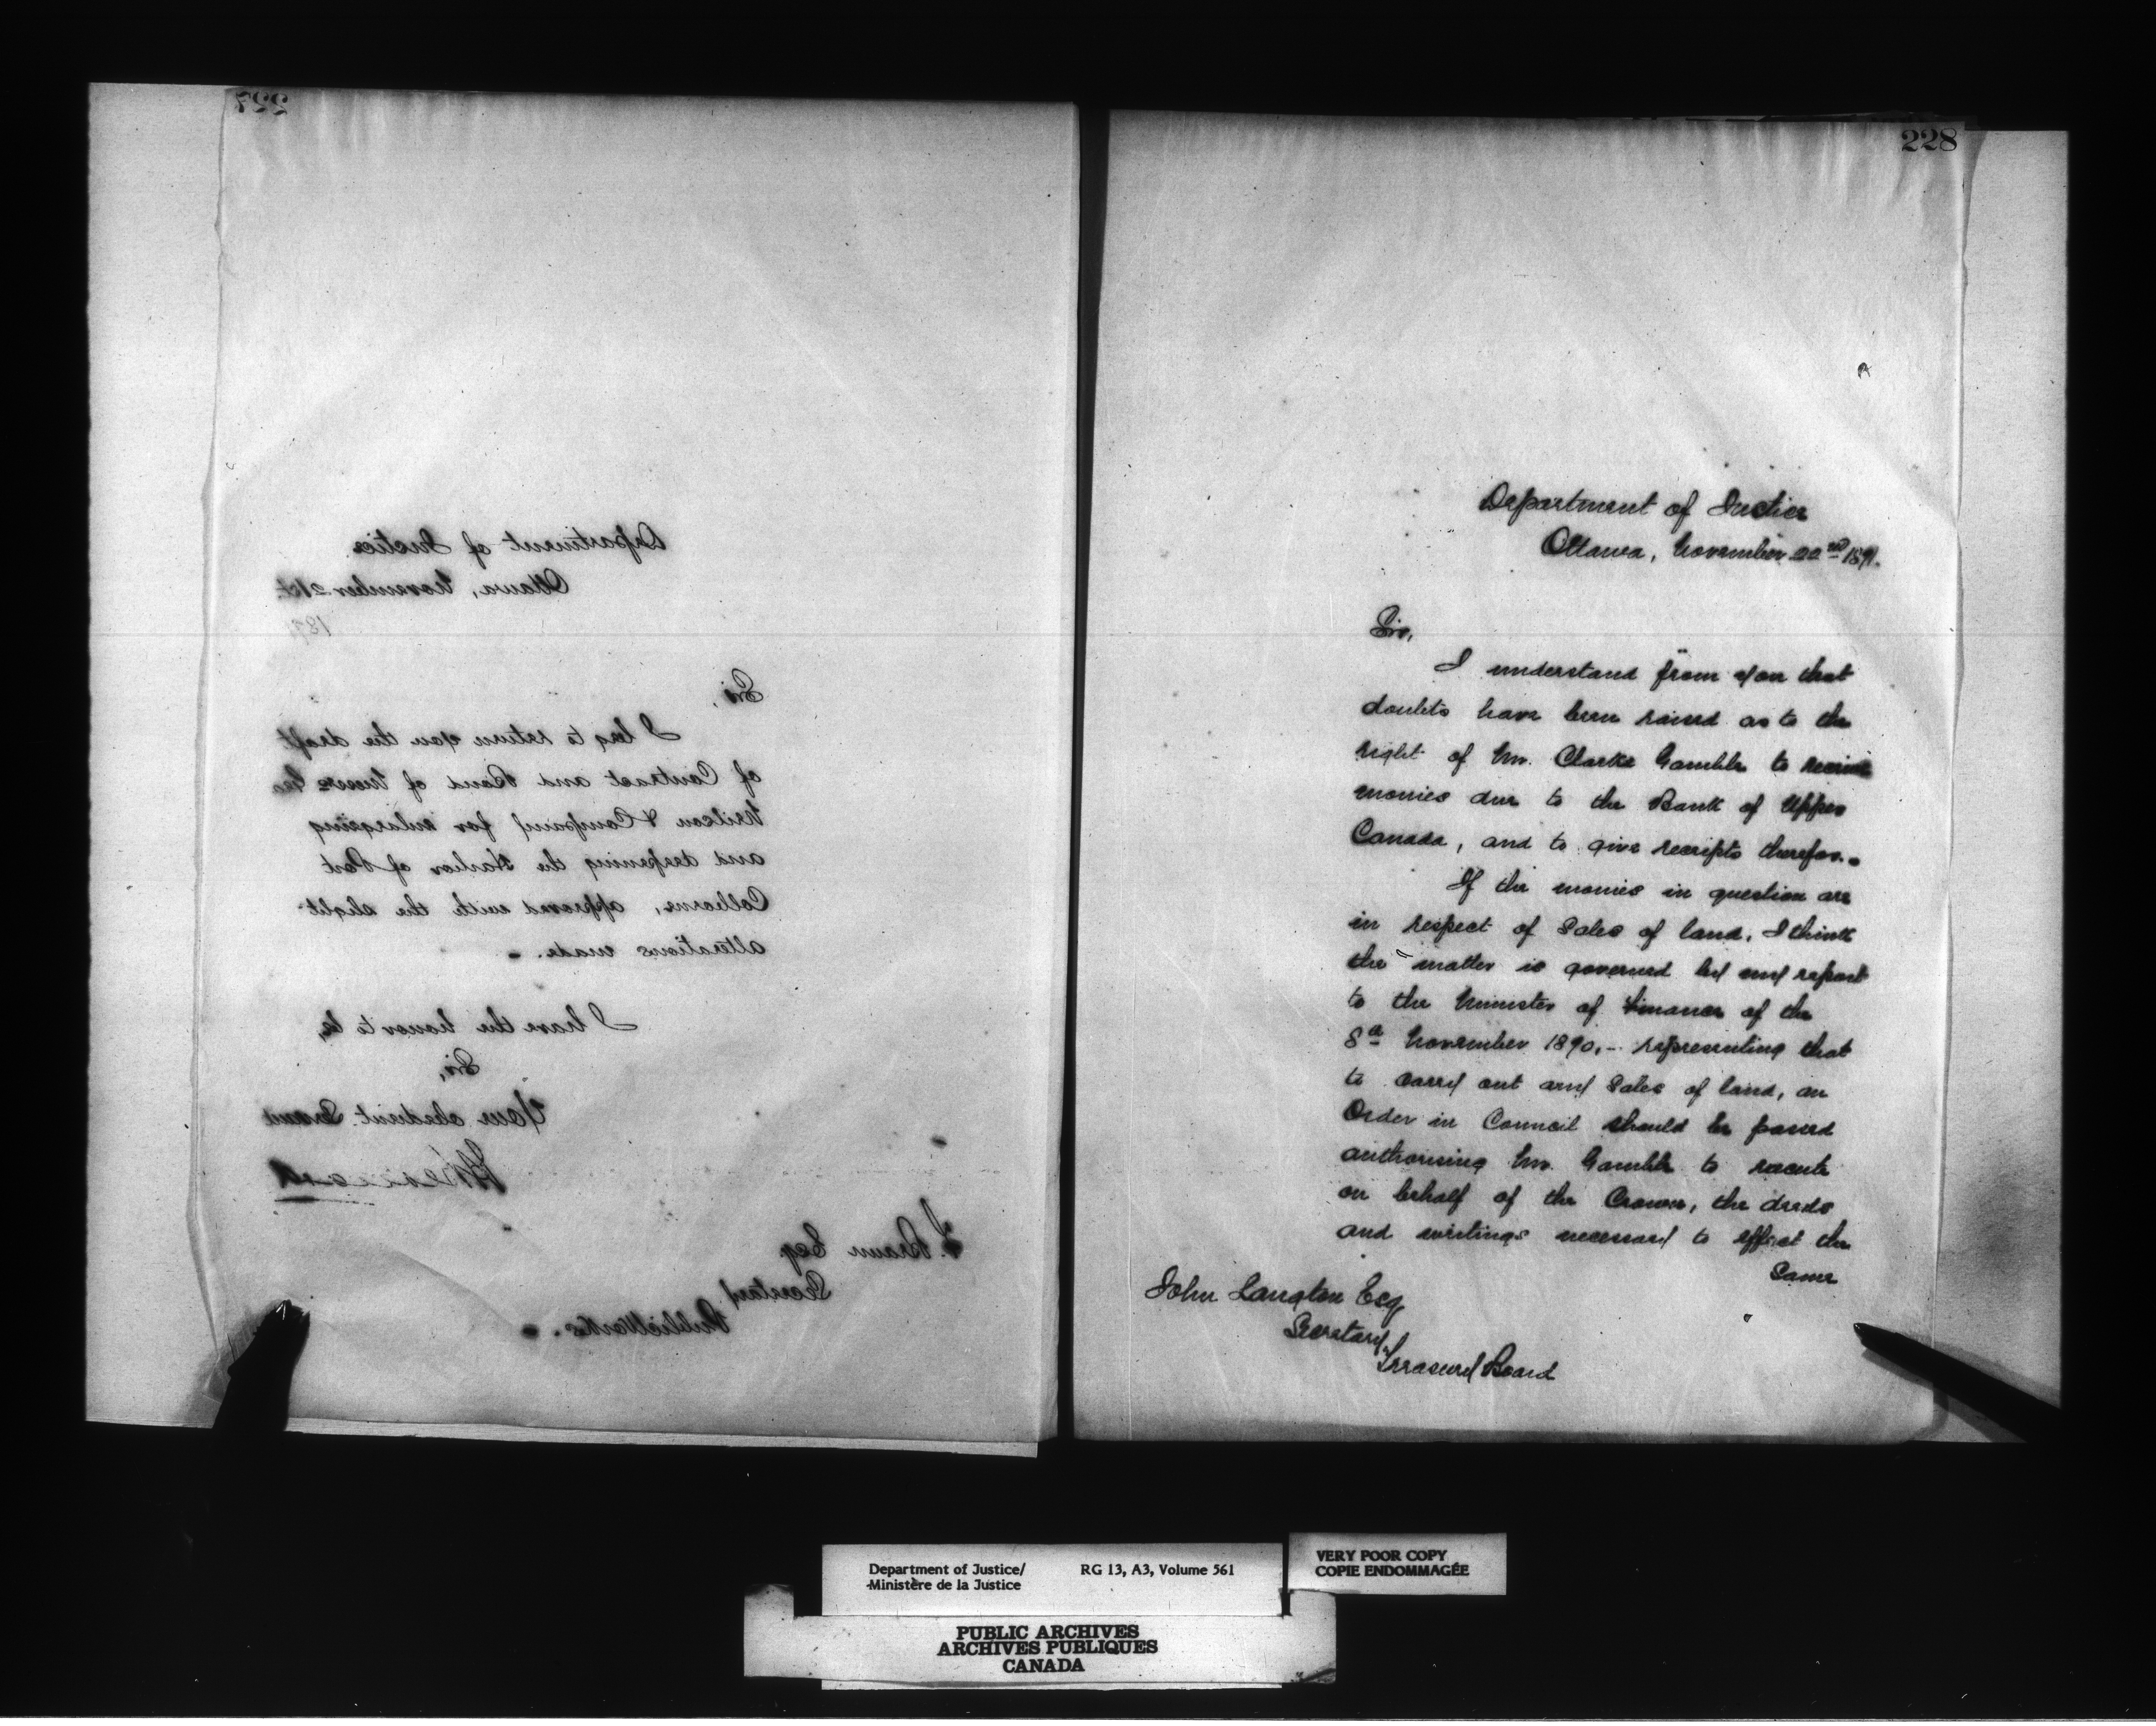 227
Department of Justice
Ottawa, November 21st
187
Sir,
I beg to return you the draft
of Contract and Bond of Messrs
Wilson & Company for enlarging
and deepening the Harbor of Port
Colborne, approved with the slight
alterations made.
I have the honor to be,
Sir,
Your obedient Servant
H Bernard
F. Braun Esq
Secretary
Public Works.
228
Department of Justice
Ottawa, November 22nd 1871.
Sir,
I understand from you that
doubts have been raised as to the
right of Mr. Clarke Gamble to receive
monies due to the Bank of Upper
Canada, and to give receipts therefor.
If the monies in question are
in respect of Sales of land, I think
the matter is governed by my report
to the Minister of Finance of the
8th November 1870, - representing that
to carry out any Sales of land, an
Order in Council should be passed
authorising Mr. Gamble to execute
on behalf of the Crown, the deeds
and writings necessary to effect the
Same
John Langton Esq
Secretary,
Treasury Board
Department of Justice/ RG 13, A3, Volume 561
Ministère de la Justice
VERY POOR COPY
COPIE ENDOMMAGÉE
PUBLIC ARCHIVES
ARCHIVES PUBLIQUES
CANADA